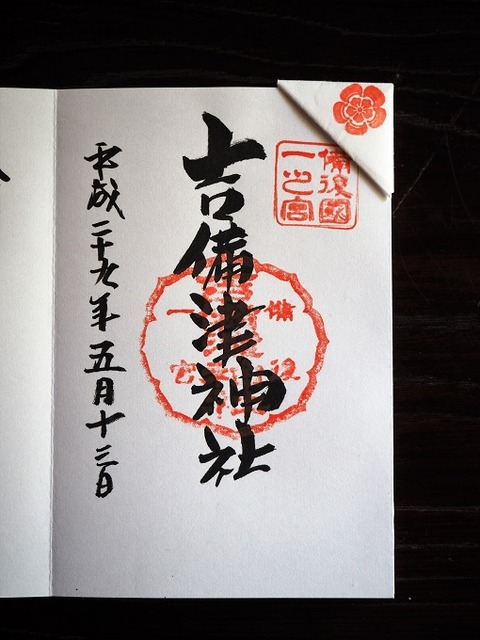 備後國
一之宮
吉備津神社
平成二十九年五月十三日